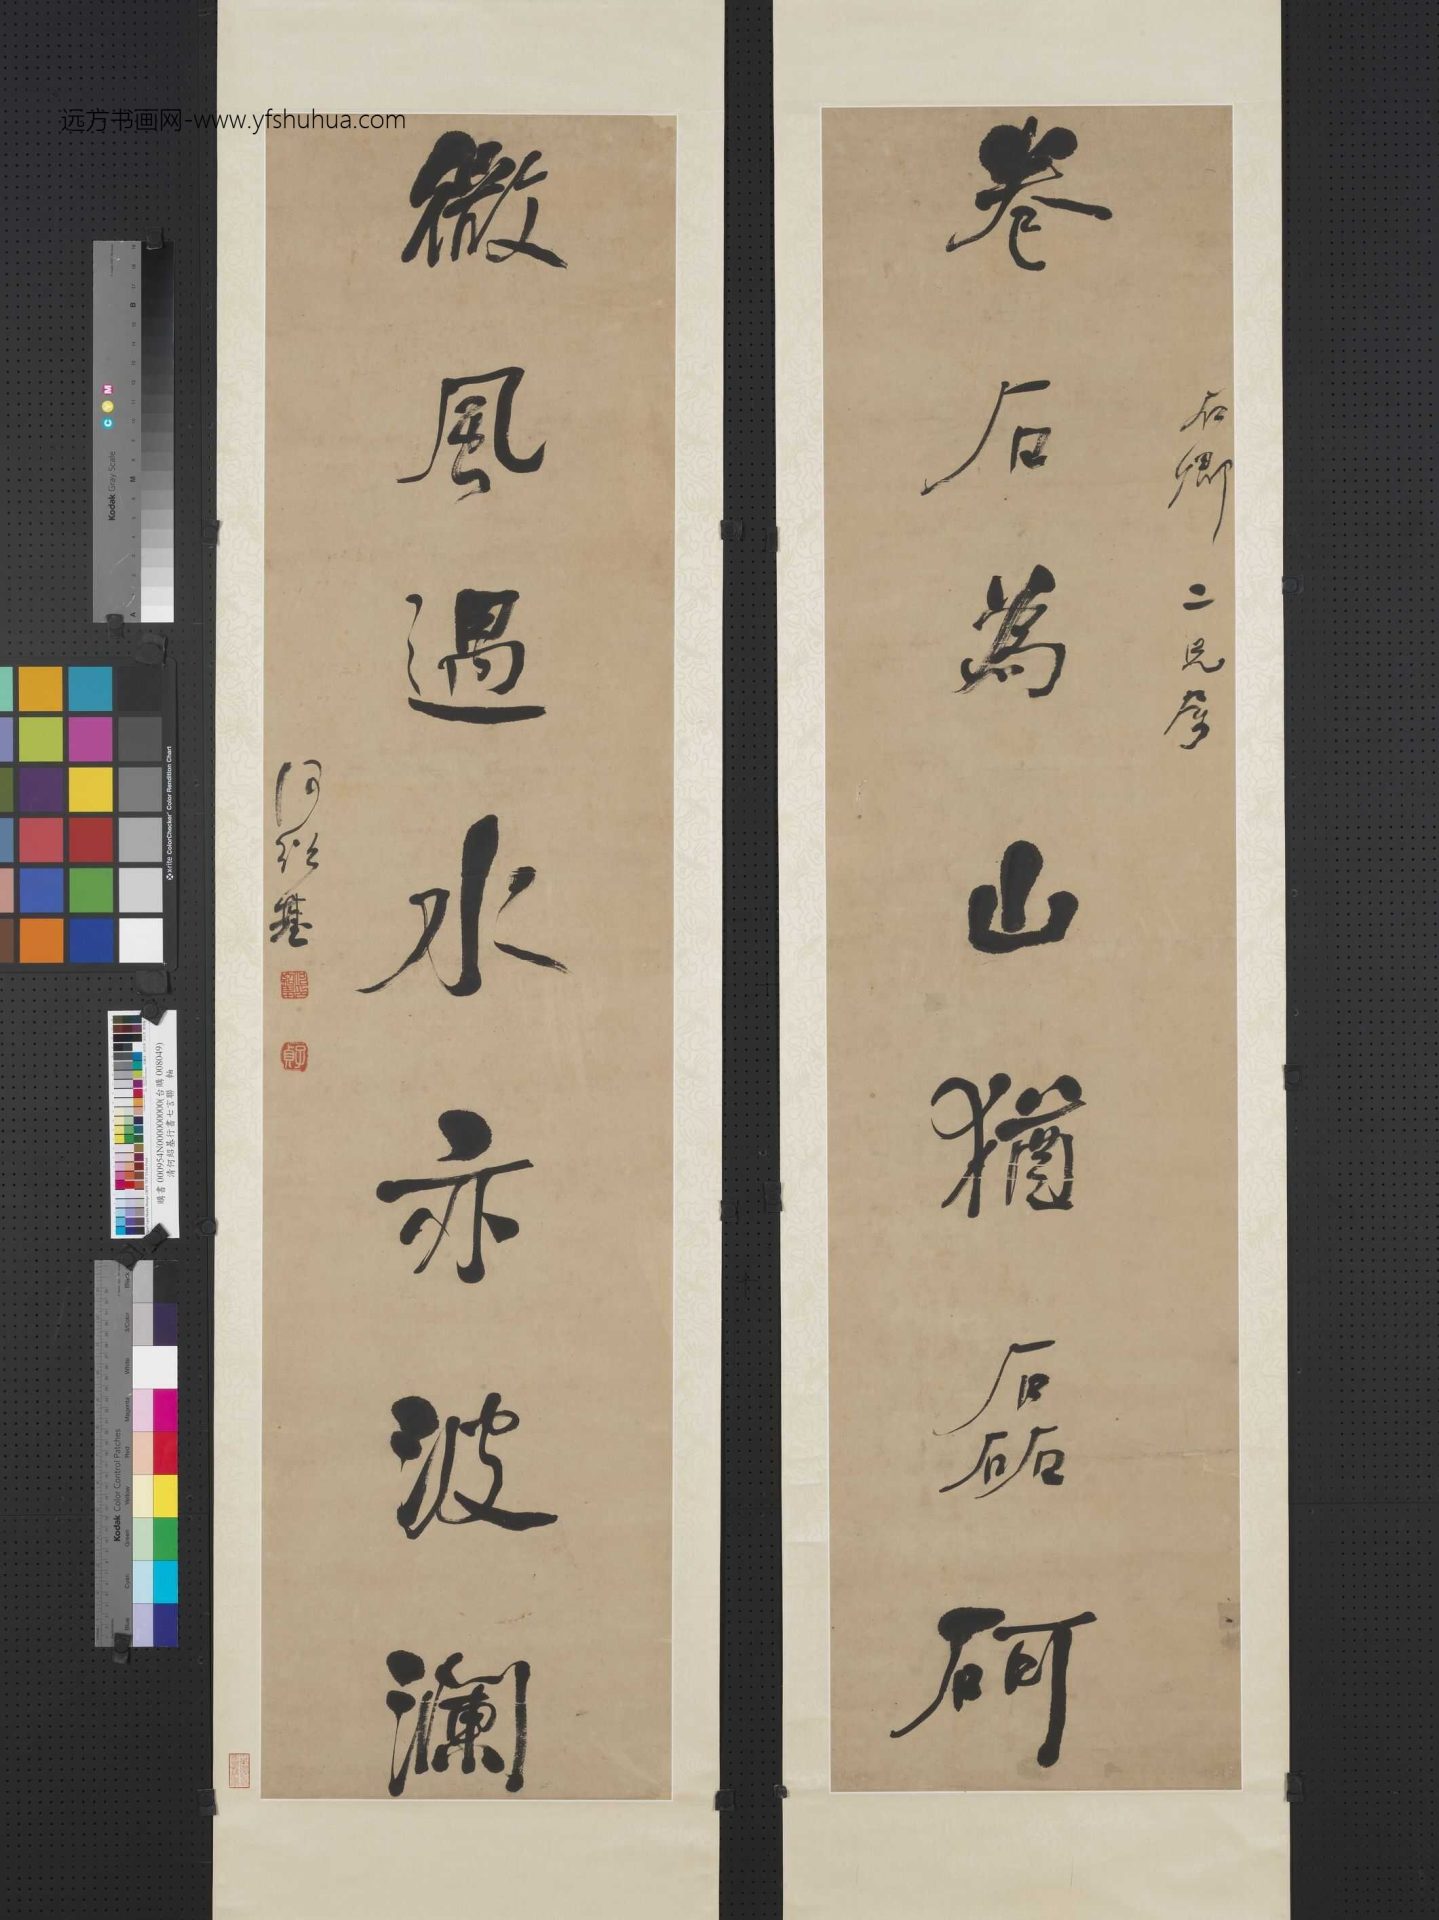 远方书画网-www.yfshuhua.com
卷石為山猶磊砢
石卿二兄屬
微風過水亦波瀾
何紹基
子貞
Kodak Gray Scale
C Y M
A
M
B
xrite ColorChecker Color Rendition Chart
購書000954N000000000(台購008049)
清何紹基行書七言聯 軸
Kodak Color Control Patches
Blue
Cyan
Green
Yellow
Red
Magenta
White
3/Color
Black